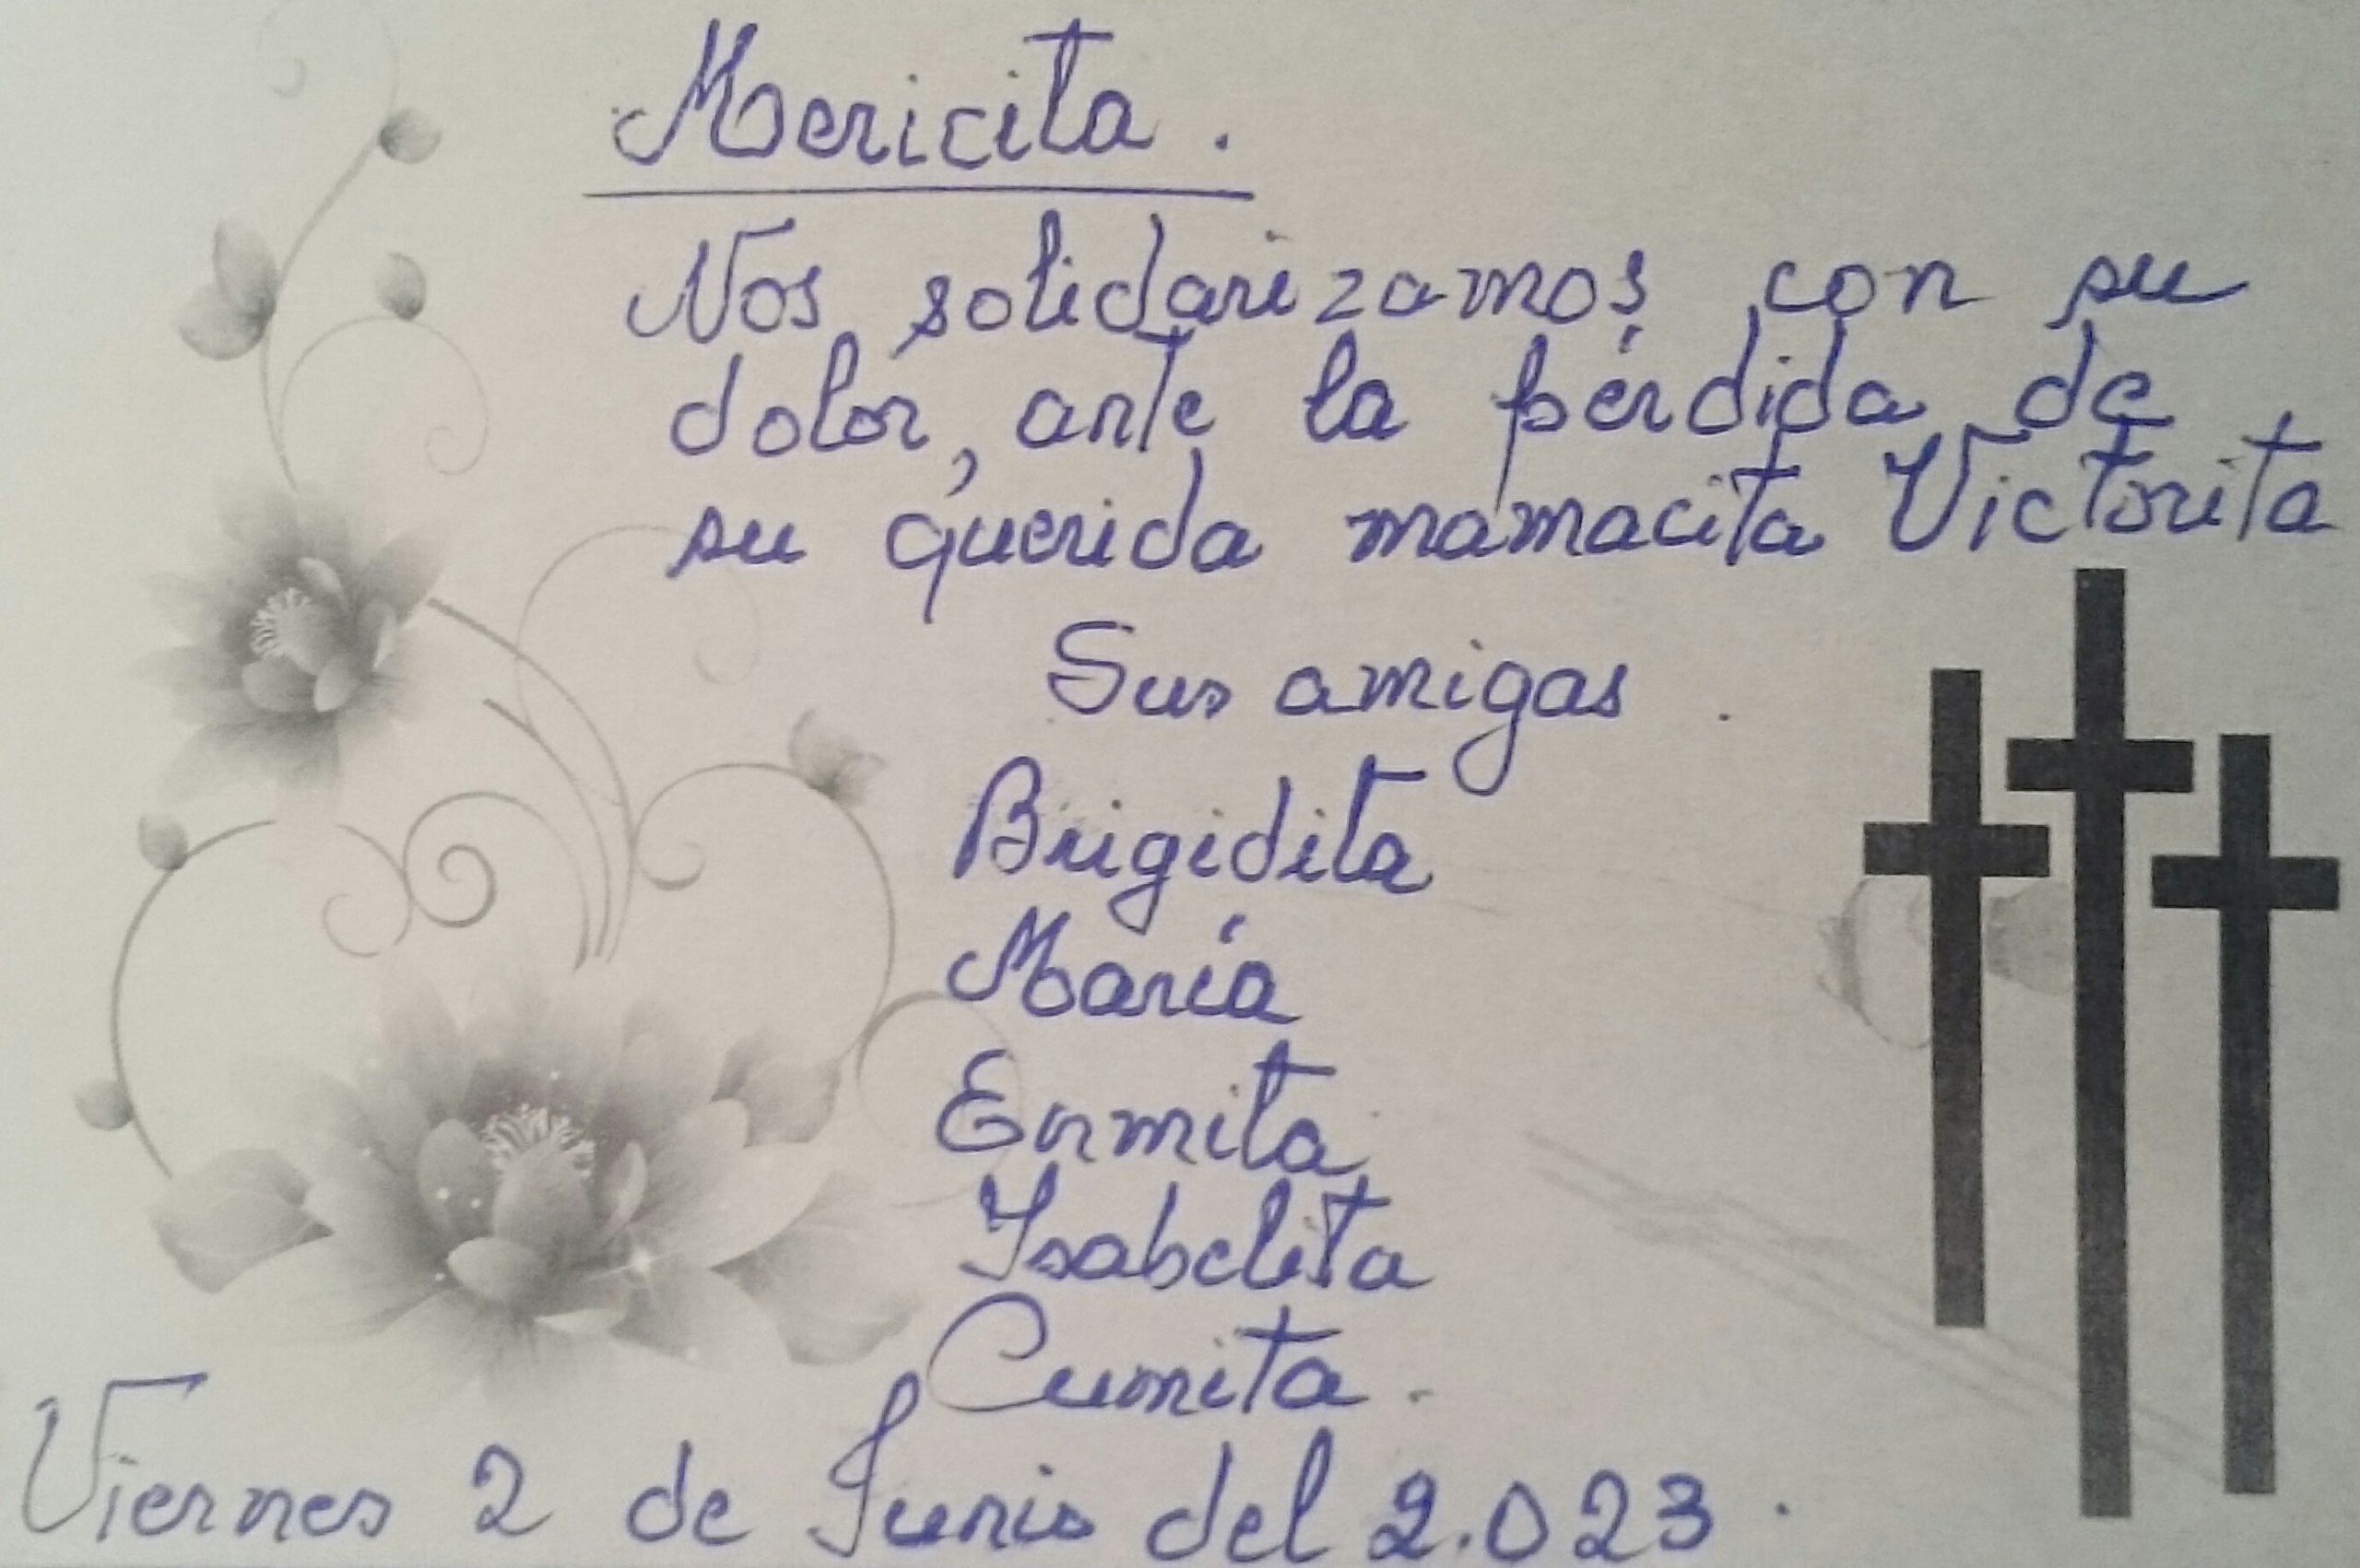 Mericita.
Nos solidarizamos con su
dolor, ante la pérdida de
su querida mamacita Victorita
Sus amigas.
Brigidita
María
Enmita
Isabelita
Cumita.
Viernes 2 de Junio del 2.023.